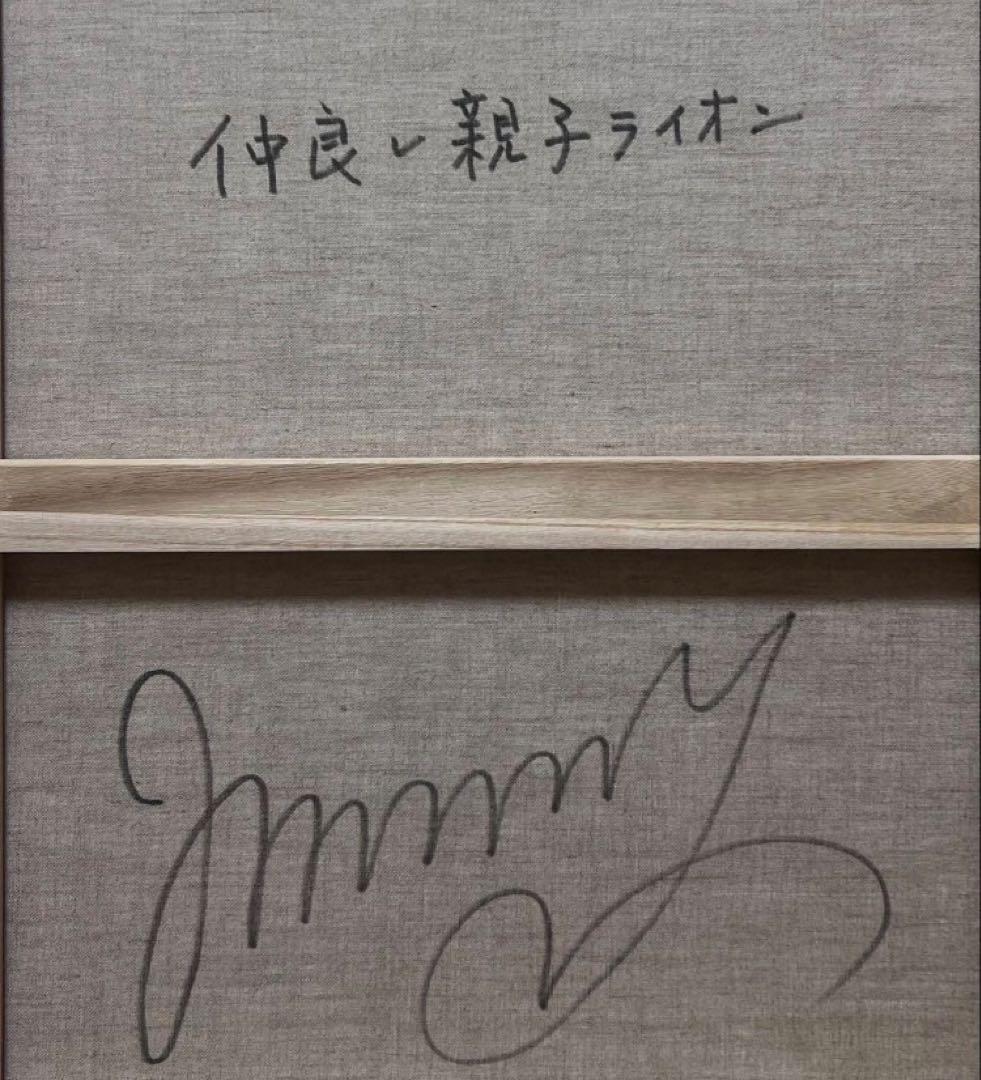 仲良い親子ライオン
Jimmy